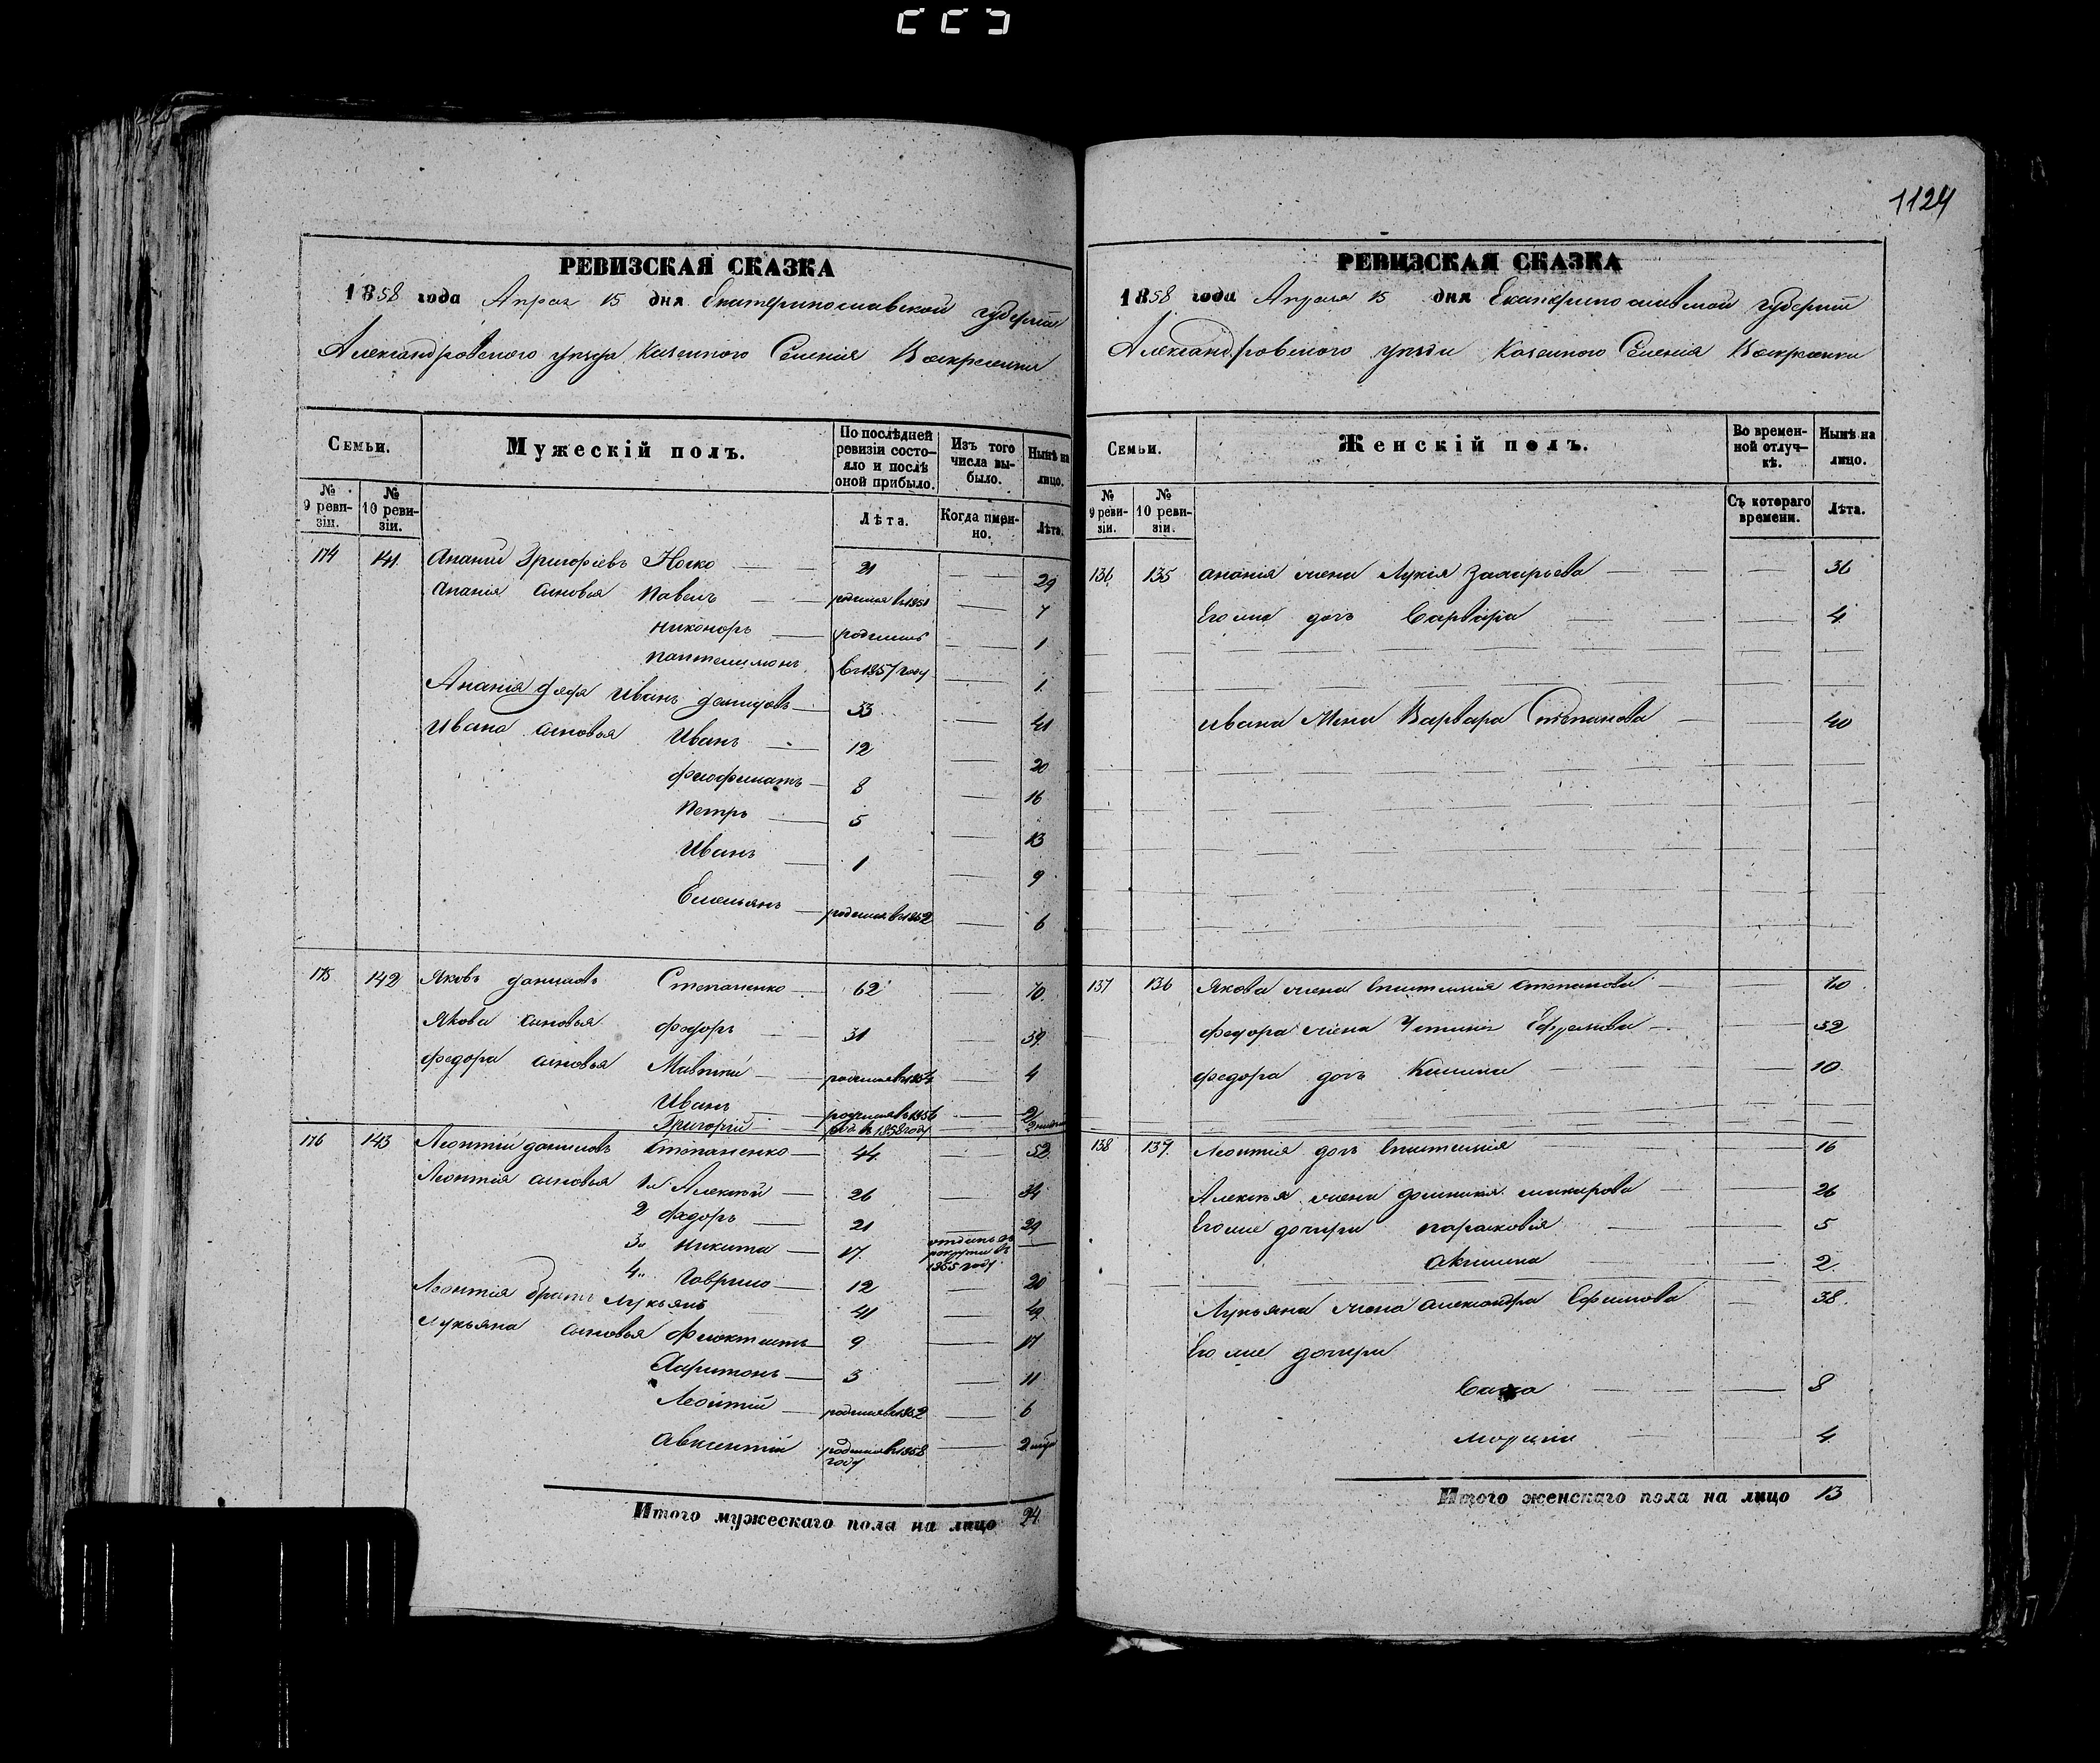 1124
РЕВИЗСКАЯ СКАЗКА
1858 года Апреля 15 дня Екатеринославской губернии
Александровского уезда Казенного Селения Воскресенки
Семьи.
Мужескій полъ.
По послѣдней ревизіи состо-яло и послѣ оной прибыло.
Изъ того числа вы-было.
Нынѣ на лицо.
№ 9 реви-зіи.
№ 10 реви-зіи.
Лѣта.
Когда имен-но.
Лѣта.
174 141 Ананій Григорьевъ Носко 21 29
Ананія сыновья Павелъ родился въ 1851 7
Никоноръ родились 1
Пантелимонъ въ 1857 году 1
Ананія дядя Иванъ 33 41
Ивана сыновья Иванъ 12 20
Феофилактъ 8 16
Петръ 5 13
Иванъ 1 9
Емельянъ родился въ 1852 6
175 142 Яковъ Даниловъ Степаненко 62 70
Якова сыновья Федоръ 31 39
Федора сыновья родился въ 1854 4
Иванъ родился въ 1856 2
Григорій род. въ 1858 году
176 143 Леонтій Даниловъ Степаненко 44 52
Леонтія сыновья 1й Алексѣй 26 34
2 Федоръ 21 29
3й Никита 17 отданъ въ рекруты въ 1855 году
4й Гаврило 12 20
Леонтія братъ Лукьянъ 41 49
Лукьяна сыновья Феоктистъ 9 17
Харитонъ 3 11
Леонтій родился въ 1852 6
Авксентій родился въ 1858 году
Итого мужескаго пола на лицо 24
РЕВИЗСКАЯ СКАЗКА
1858 года Апреля 15 дня Екатеринославской губернии
Александровского уезда Казенного Селения Воскресенки
Семьи.
Женскій полъ.
Во времен-ной отлуч-кѣ.
Нынѣ на лицо.
№ 9 реви-зіи.
№ 10 реви-зіи.
Съ котораго времени.
Лѣта.
136 135 Ананія жена Лукія Захарьева 36
Его же дочь Варвара 4
Ивана жена Варвара Степанова 40
137 136 Якова жена Степанова
Федора жена
Федора дочь 10
138 137 Леонтія дочь 16
Алексѣя жена 26
Его же дочери Парасковія 5
Акилина 2
Лукьяна жена Александра Ефимова 38
Его же дочери
8
4
Итого женскаго пола на лицо 13